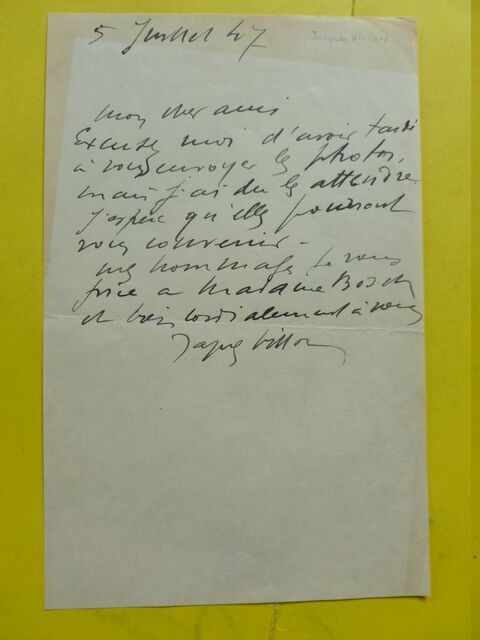 5 Juillet 47
Jacques Villon
mon cher ami
Excusez moi d'avoir tardé
à vous envoyer les photos,
mais j'ai du les attendre
j'espère qu'elles pourront
vous convenir -
mes hommages je vous
prie a Madame Bosch
et bien cordialement à vous
Jacques Villon